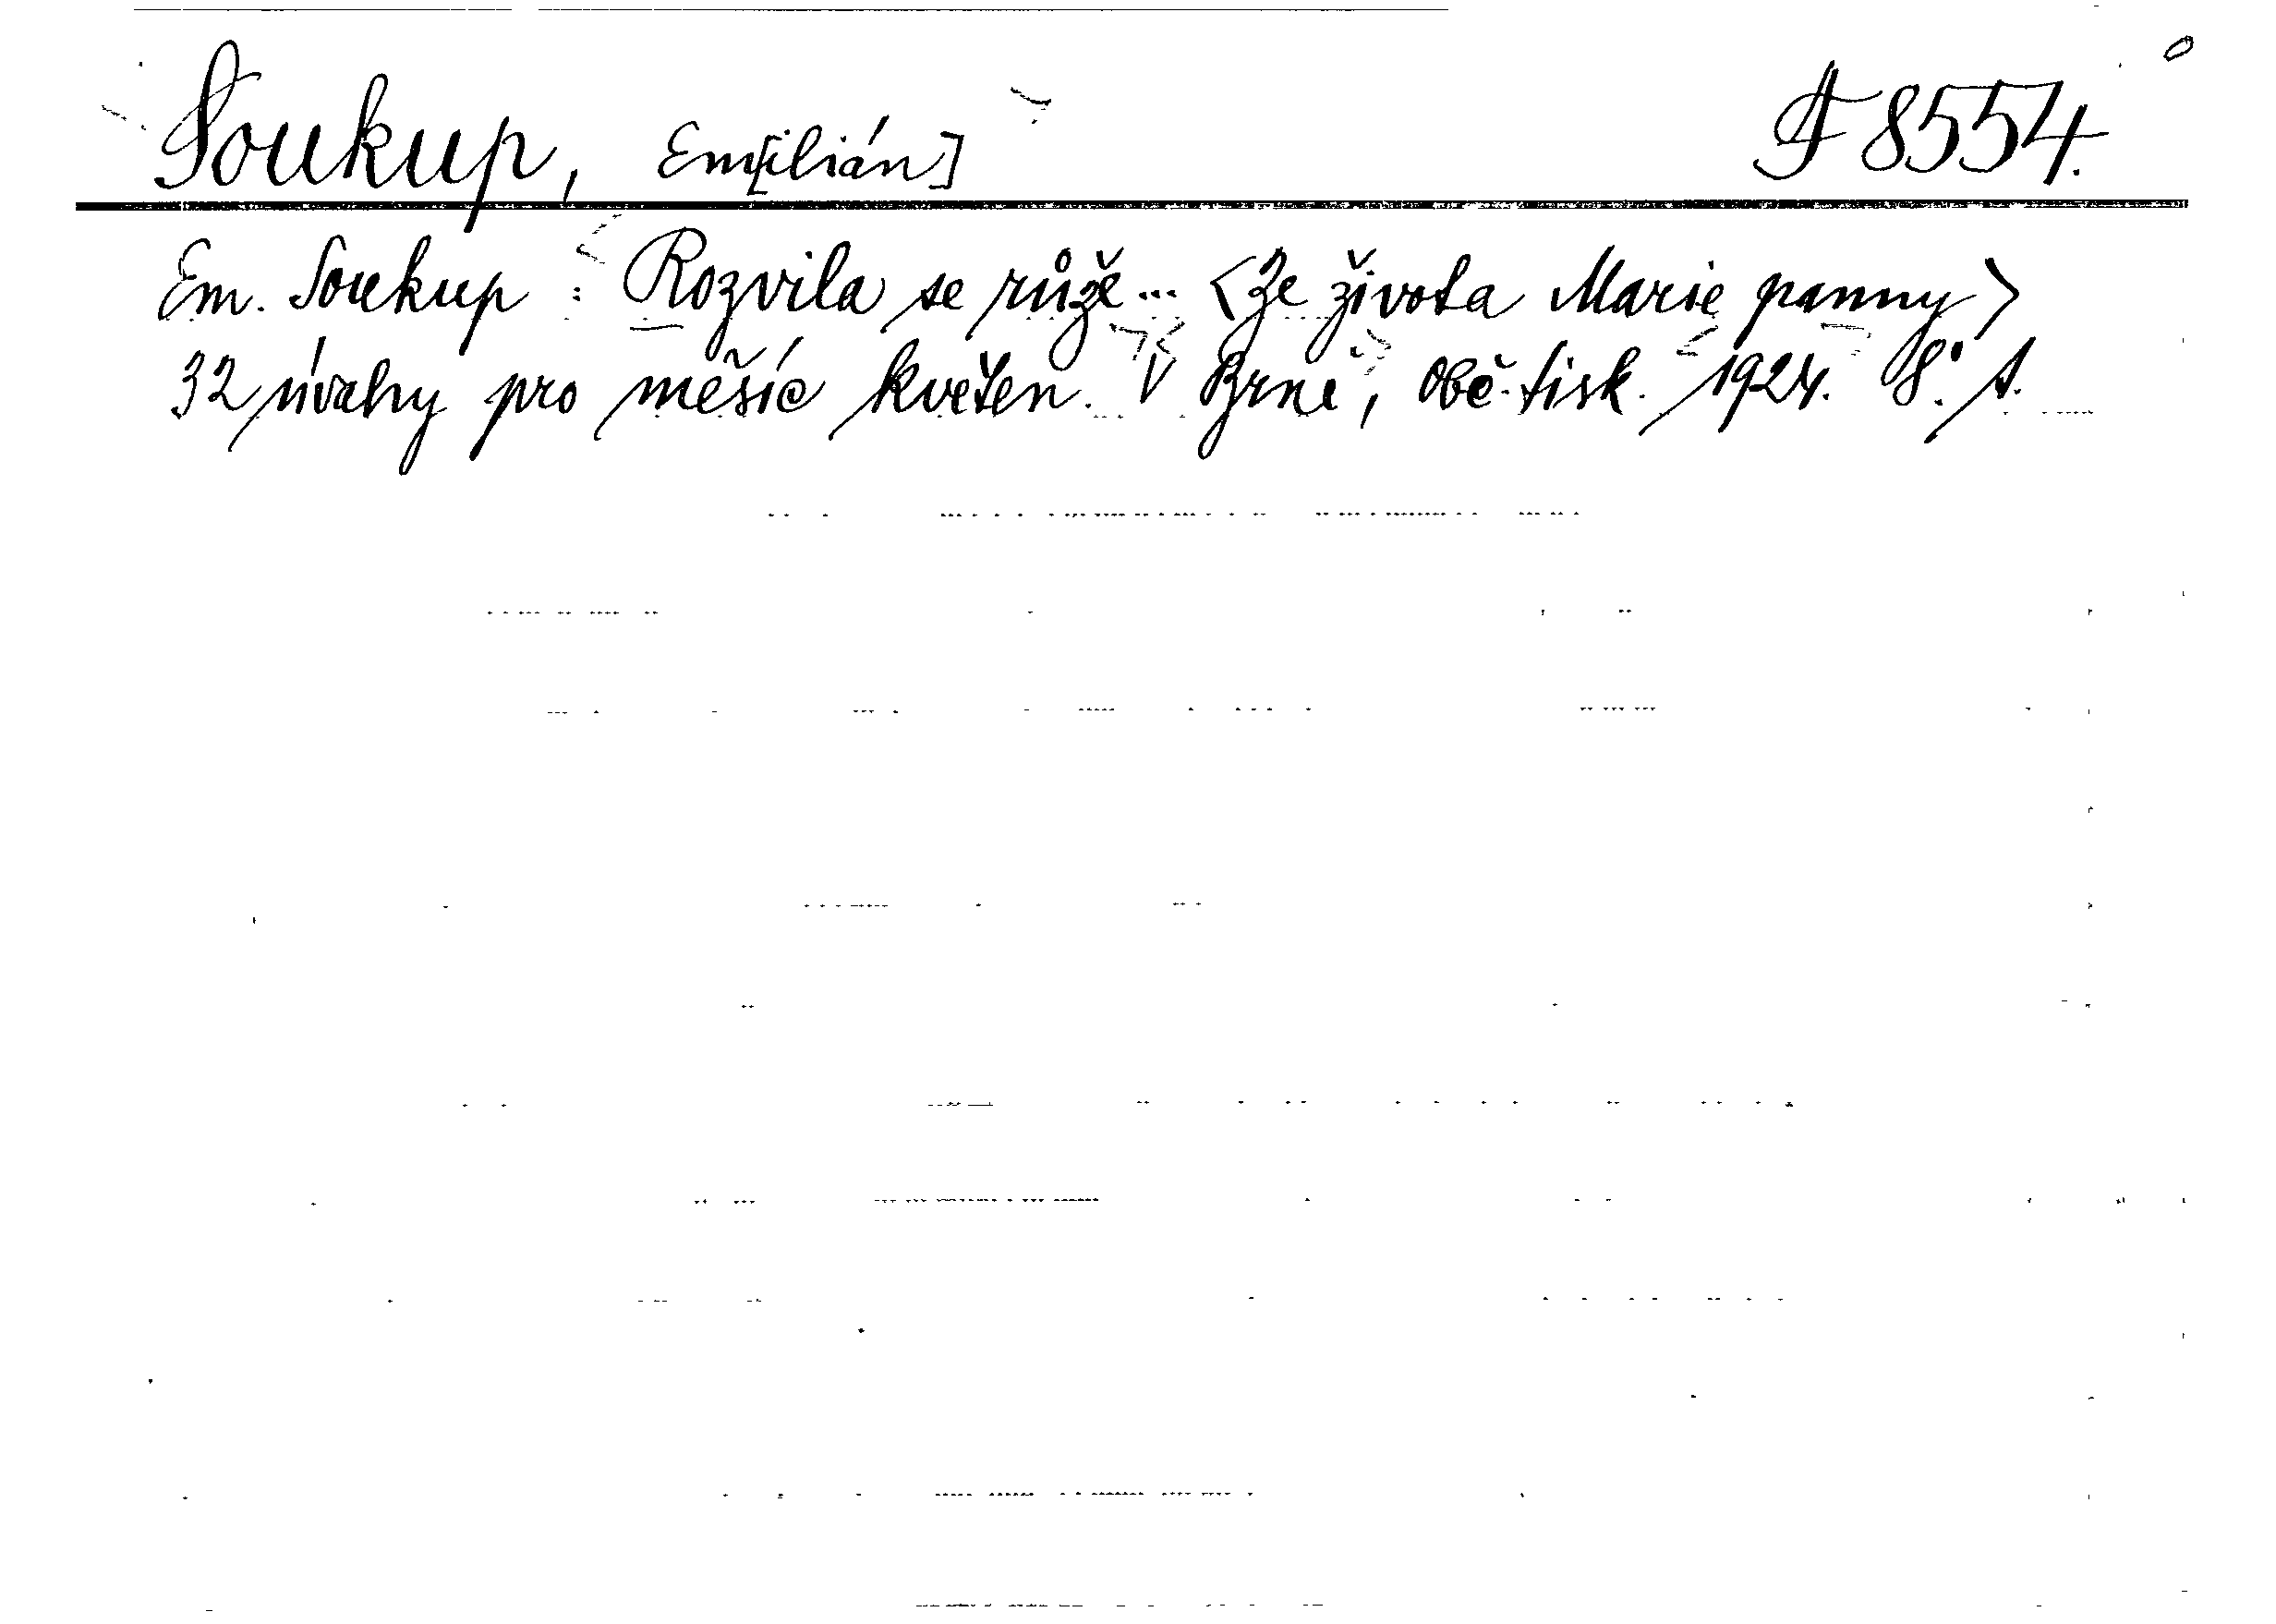 Soukup, Em[ilián] F 8554.
Em. Soukup : Rozvila se růže... <Ze života Marie panny>
32 úvahy pro měsíc květen. V Brně, Obč. tisk. 1924. 8°.